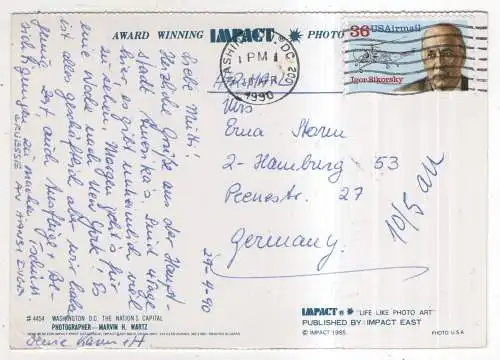 AWARD WINNING IMPACT PHOTO
WASHINGTON, DC 200
1 PM
1990
36 USAirmail
Igor Sikorsky
AIRMAIL
Liebe Mutti!
Herzliche Grüße aus der Haupt-
stadt Amerika's. Sind 4 Tage
hier, es gibt unheimlich viel
zu sehen. Morgen geht's für
eine Woche nach New York! Es
ist alles geschäftlich aber wir haben
genug Zeit, auch Ausflüge + Be-
sichtigungen zu machen. Tschüß
GRÜSSE AN HANSI
Erna Storm
2-Hamburg 53
27
Germany
10/5 an
29-4-90
#4454 WASHINGTON D.C. THE NATION'S CAPITAL
PHOTOGRAPHER - MARVIN H. WARTZ
IMPACT "LIFE LIKE PHOTO ART"
PUBLISHED BY: IMPACT EAST
© IMPACT 1985
PHOTO U.S.A.